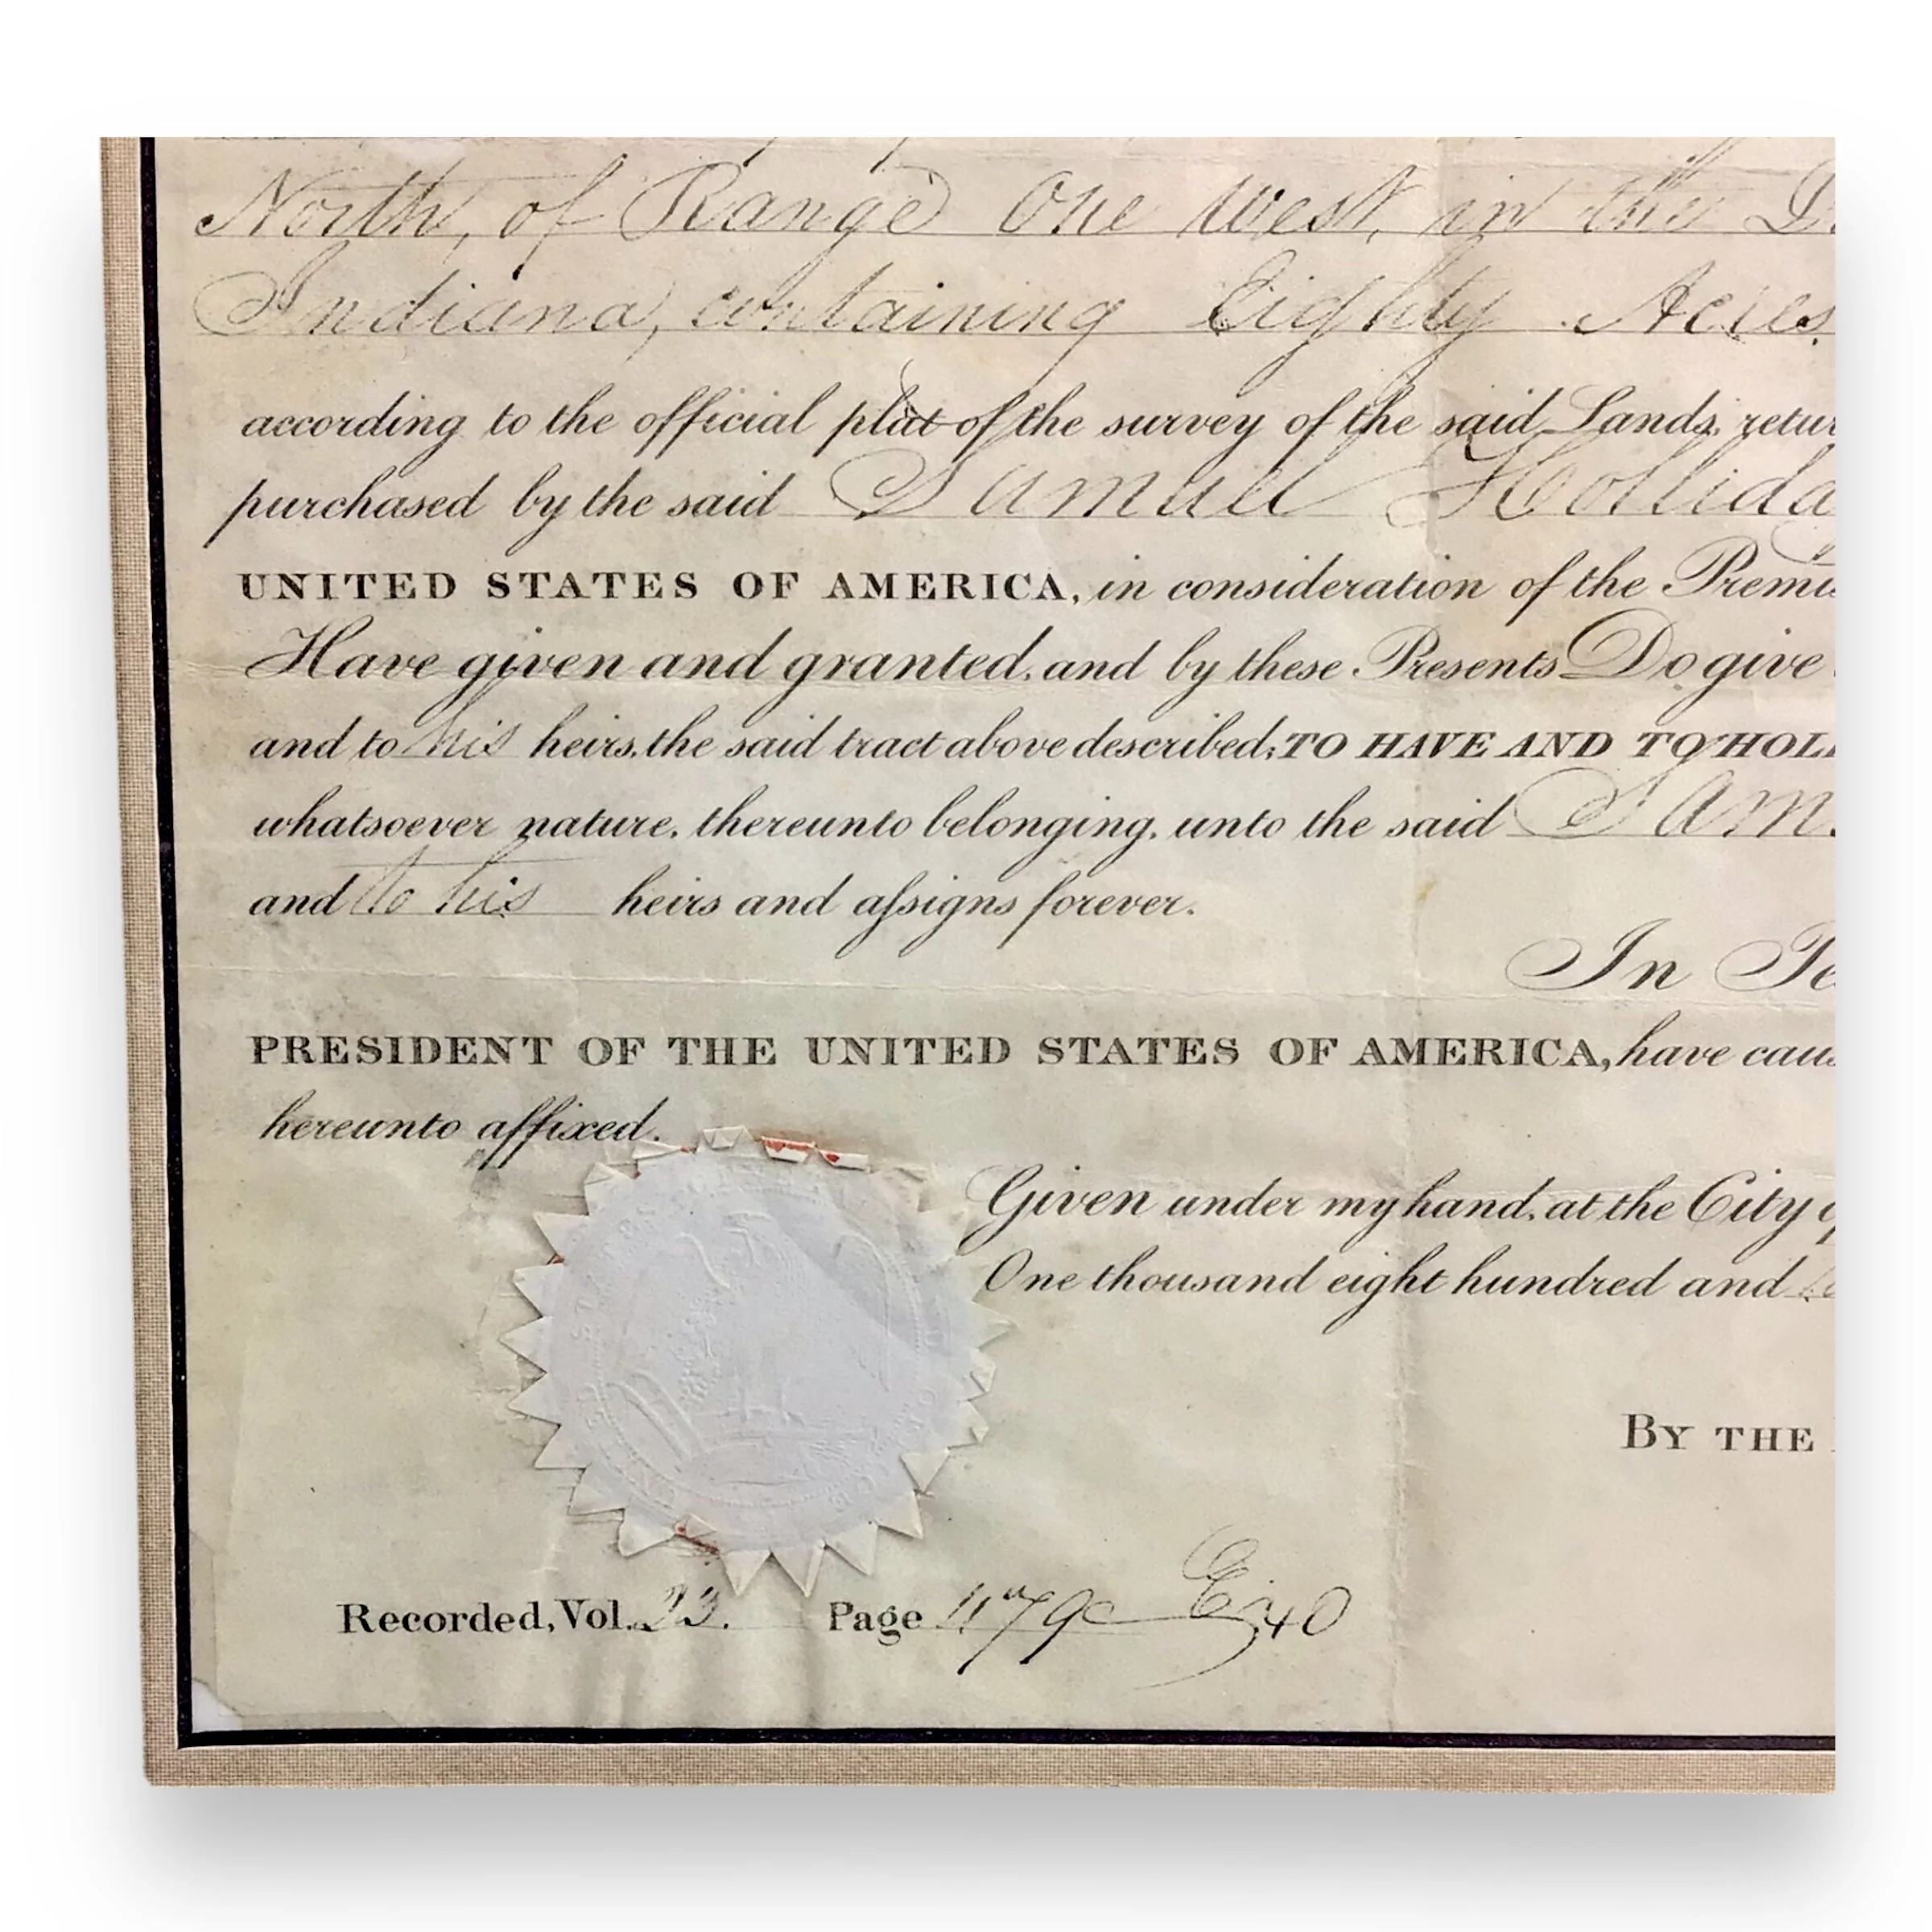 North, of Range One West, in the D
Indiana, containing Eighty Acres.
according to the official plat of the survey of the said Lands, retur
purchased by the said Samuel Hollida
UNITED STATES OF AMERICA, in consideration of the Premi
Have given and granted, and by these Presents Do give
and to his heirs, the said tract above described; TO HAVE AND TO HOL
whatsoever nature, thereunto belonging, unto the said Sam
and to his heirs and assigns forever.
In Te
PRESIDENT OF THE UNITED STATES OF AMERICA, have caus
hereunto affixed.
Given under my hand, at the City
One thousand eight hundred and
BY THE
Recorded, Vol. 23. Page